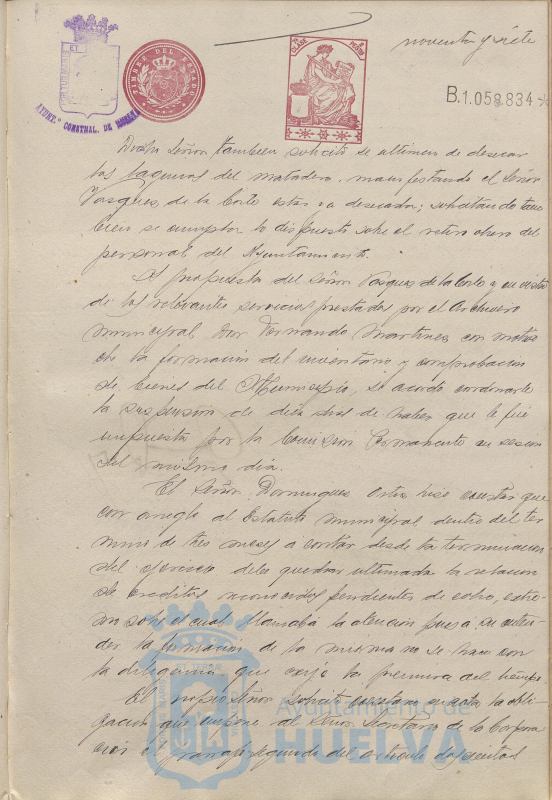 noventa y siete
PORTUS MARIS ET
AYUNT.º CONSTNAL. DE HUELVA
TIMBRE DEL ESTADO
CLASE
B.1.058.834
Dicho Señor tambien solicitó se ultimen de desecar
las lagunas del matadero, manifestando el Señor
Vazquez de la Corte estar ya desecadas; solicitando tam
bien se cumpla lo dispuesto sobre el retiro obrero del
personal del Ayuntamiento.
A propuesta del Señor Vazquez de la Corte y en vista
de los relevantes servicios prestados por el Archivero
municipal Don Fernando Martinez con motivo
de la formación del inventario y comprobacion
de bienes del Municipio, se acordó condonarle
la suspension de diez dias de haber que le fué
impuesta por la Comision Permanente en sesion
del mismo día.
El Señor Dominguez Ortiz hizo constar que
con arreglo al Estatuto municipal dentro del ter
mino de tres meses a contar desde la terminacion
del ejercicio debe quedar ultimada la relacion
de creditos reconocidos pendientes de cobro, extre
mo sobre el cual llamaba la atencion pues a su enten
der la formacion de la misma no se hace con
la diligencia que exije la premura del tiempo.
El propio Señor solicitó constara en acta la obli
gacion que impone al Señor Secretario de la Corpora
cion el parrafo segundo del articulo doscientos
Ayuntamiento de
HUELVA